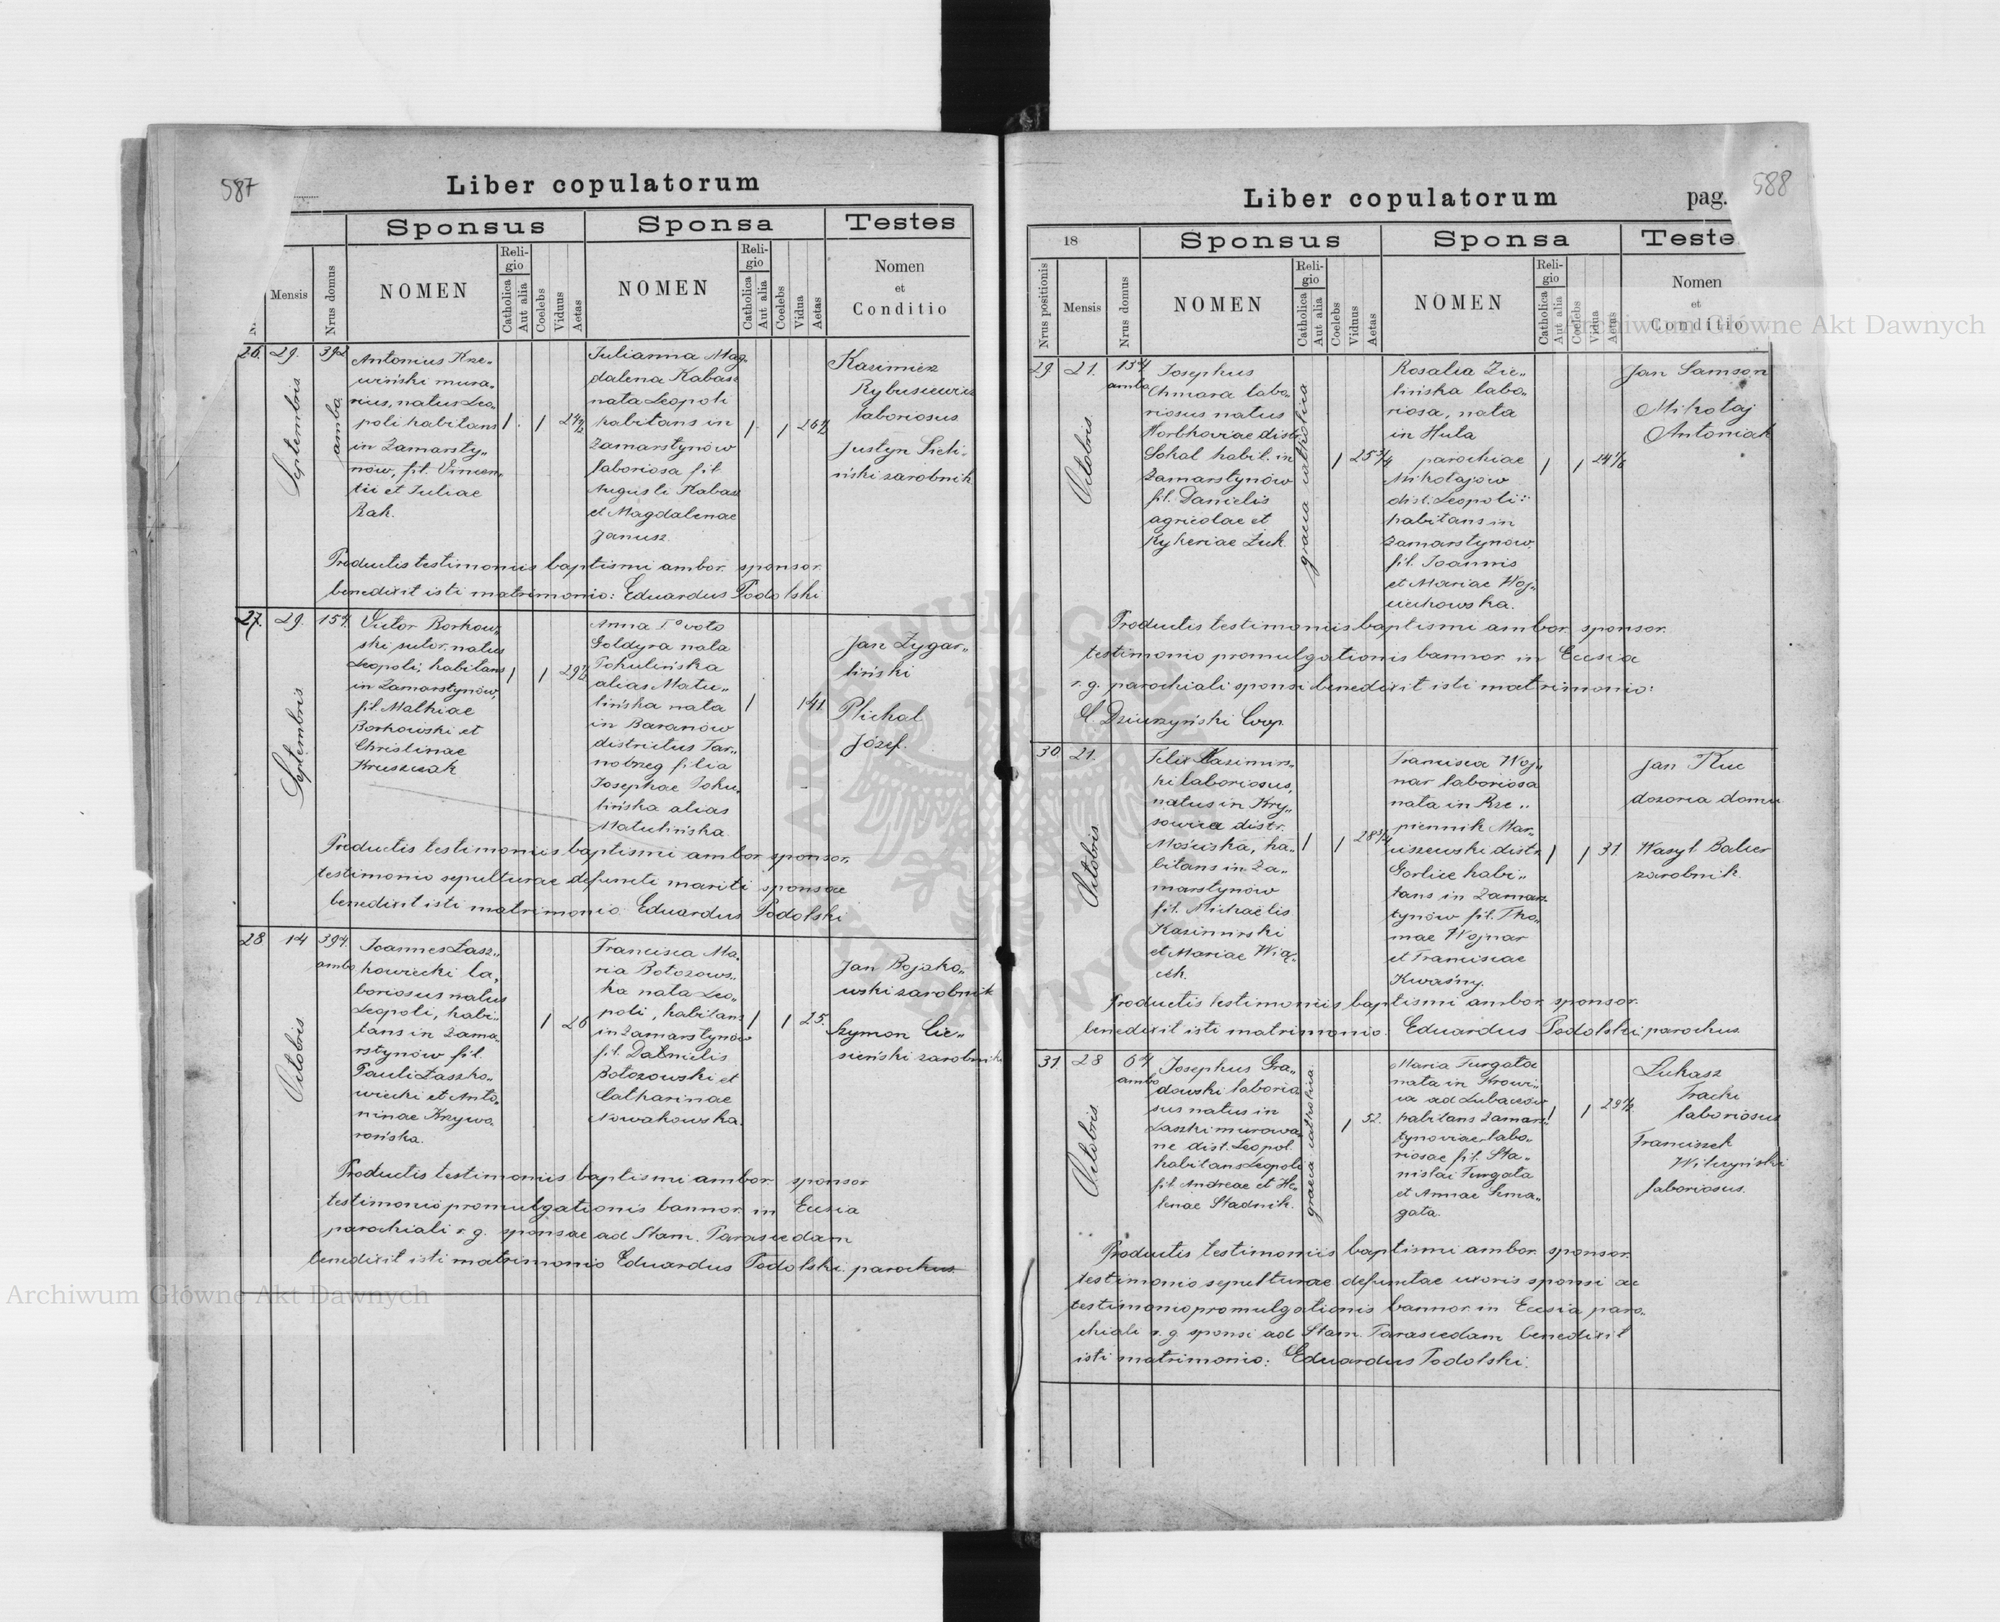 587
Liber copulatorum
Sponsus
Sponsa
Testes
Mensis
Nrus domus
NOMEN
Religio
Catholica
Aut alia
Coelebs
Viduus
Aetas
NOMEN
Religio
Catholica
Aut alia
Coelebs
Vidua
Aetas
Nomen
et
Conditio
26. 29. Septembris 392 ambo
Antonius Krze„
wiński mura„
rius, natus Leo„
poli habitans
in Zamarsty„
nów, fil. Vincen„
tii et Juliae
Bak.
1 1 24½
Julianna Mag
dalena Kabas
nata Leopoli
habitans in
Zamarstynów
laboriosa fil.
Augusti Kabas
et Magdalenae
Janusz.
1 1 26½
Kazimierz
Rybusiewicz
laboriosus
Justyn Sieli„
ński zarobnik
Productis testimoniis baptismi ambor. sponsor.
benedixit isti matrimonio: Eduardus Podolski
27. 29. Septembris 157.
Victor Borkow„
ski sutor. natus
Leopoli, habitans
in Zamarstynów,
fil. Mathiae
Borkowski et
Christinae
Kruszczak
1 1 29½
Anna Iº voto
Goldyra nata
Tokulińska
alias Matu„
lińska nata
in Baranów
districtus Tar„
nobrzeg filia
Josephae Toku„
lińska alias
Matulińska
1 1 41
Jan Zygar„
liński
Plichal
Józef.
Productis testimoniis baptismi ambor sponsor,
testimonio sepulturae defuncti mariti sponsae
benedixit isti matrimonio Eduardus Podolski
28 14 Octobris 394. ambo
Joannes Łasz„
kowiecki la„
boriosus natus
Leopoli, habi„
tans in Zama„
rstynów fil.
Pauli Łaszko„
wiecki et Anto„
ninae Krzywo„
rońska.
1 26
Francisca Ma„
ria Bołozows„
ka nata Leo„
poli, habitans
in Zamarstynów
fil. Danielis
Bołozowski et
Catharinae
Nowakowska.
1 1 25.
Jan Bojako„
wski zarobnik
Szymon Cie„
sieński zarobnik
Productis testimoniis baptismi ambor sponsor
testimonio promulgationis bannor. in Eccsia
parochiali r. g. sponsae ad Stam. Parascedam
benedixit isti matrimonio Eduardus Podolski. parochus.
588
Liber copulatorum
pag.
18
Sponsus
Sponsa
Teste
Nrus positionis
Mensis
Nrus domus
NOMEN
Religio
Catholica
Aut alia
Coelebs
Viduus
Aetas
NOMEN
Religio
Catholica
Aut alia
Coelebs
Vidua
Aetas
Nomen
et
Conditio
29 21. Octobris 154 ambo
Josephus
Chmara labo„
riosus natus
Horbkoviae distr.
Sokal habit. in
Zamarstynów
fil. Danielis
agricolae et
Kykeriae Zuk.
graeca catholica
1 25¾
Rosalia Zie„
lińska labo„
riosa, nata
in Huta
parochiae
Mikołajow
dist. Leopoli
habitans in
Zamarstynów,
fil. Joannis
et Mariae Woj„
ciechowska.
1 1 24⅙
Jan Samson
Mikołaj
Antoniak
Productis testimoniis baptismi ambor sponsor.
testimonio promulgationis bannor. in Eccsia
r. g. parochiali sponsi benedixit isti matrimonio:
Dziurzyński Coop.
30 21. Octobris
Felix Kazimirs„
ki laboriosus,
natus in Kry„
sowice distr.
Mościska, ha„
bitans in Za„
marstynów
fil. Michaelis
Kazimirski
et Mariae Wią„
cek.
1 1 28¾
Francisca Woj„
nar laboriosa
nata in Rze„
piennik Mar„
ciszewski distr.
Gorlice habi„
tans in Zamars
tynów fil. Tho„
mae Wojnar
et Franciscae
Kwaśny.
1 1 31.
Jan Kuc
dozorca domu
Wasyl Balicer
zarobnik.
Productis testimoniis baptismi ambor. sponsor.
benedixit isti matrimonio. Eduardus Podolski parochus.
31 28 Octobris 64 ambo
Josephus Gra„
dowski laborio
sus natus in
Laszki murowa„
ne dist. Leopol.
habitans Leopoli
fil. Andreae et He„
lenae Stadnik.
graeca catholica
1 52.
Maria Furgata
nata in Krowi„
ca ad Lubaczów
habitans Zamars„
tynoviae labo„
riosae fil. Sta„
nislai Furgata
et Annae Szma„
gata.
1 1 29½
Łukasz
Tracki
laboriosus
Franciszek
Wilczyński
laboriosus.
Productis testimoniis baptismi ambor sponsor.
testimonio sepulturae defunctae uxoris sponsi ac
testimonio promulgationis bannor. in Eccsia paro„
chiali r. g. sponsi ad Stam. Parascedam benedixit
isti matrimonio: Eduardus Podolski.
Archiwum Główne Akt Dawnych
Archiwum Główne Akt Dawnych